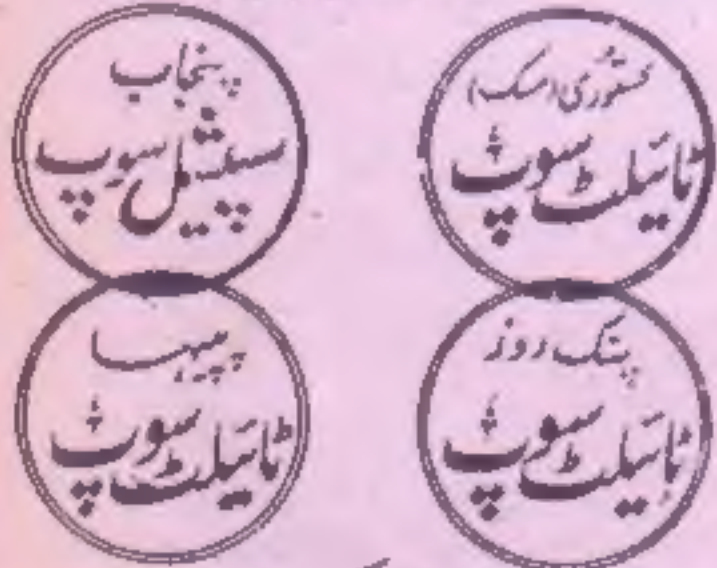 کستوری (مسک)
ٹائیلٹ سوپ
پنجاب
سپیشل سوپ
پنک روز
ٹائیلٹ سوپ
پپیہا
ٹائیلٹ سوپ